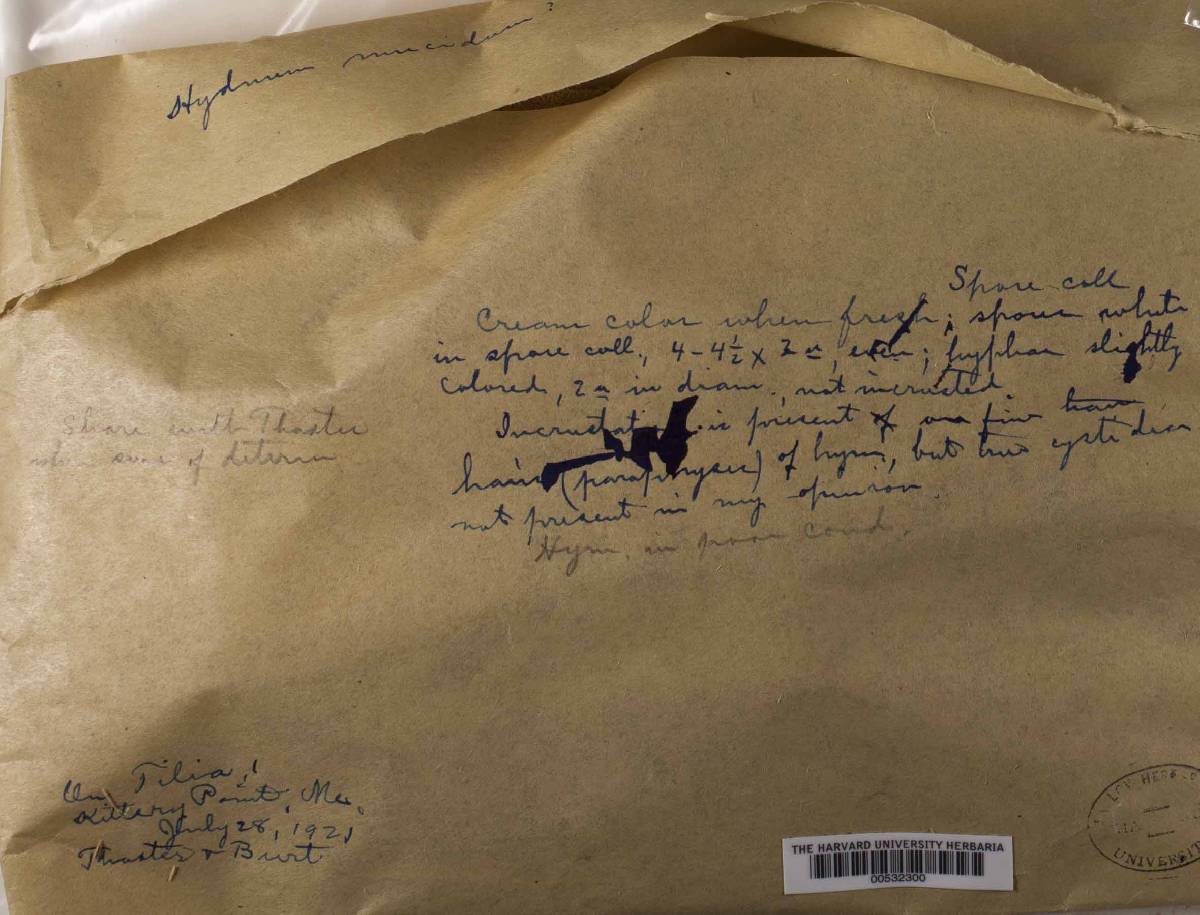 Hydnum mucidum?
Spore coll
Cream color when fresh; spores white
in spore coll., 4-4½ x 2 u, even; hyphae slightly
colored, 2 u in diam., not incrusted.
Incrustation is present on fine
hairs (paraphyses) of hym, but true cystidia
not present in my opinion.
Hym. in poor cond.
Share with Thaxter
when sure of determ
On Tilia,
Kittery Point, Me.
July 28, 1921
Thaxter & Burt
THE HARVARD UNIVERSITY HERBARIA
00532300
LOW HERB
UNIVERSIT